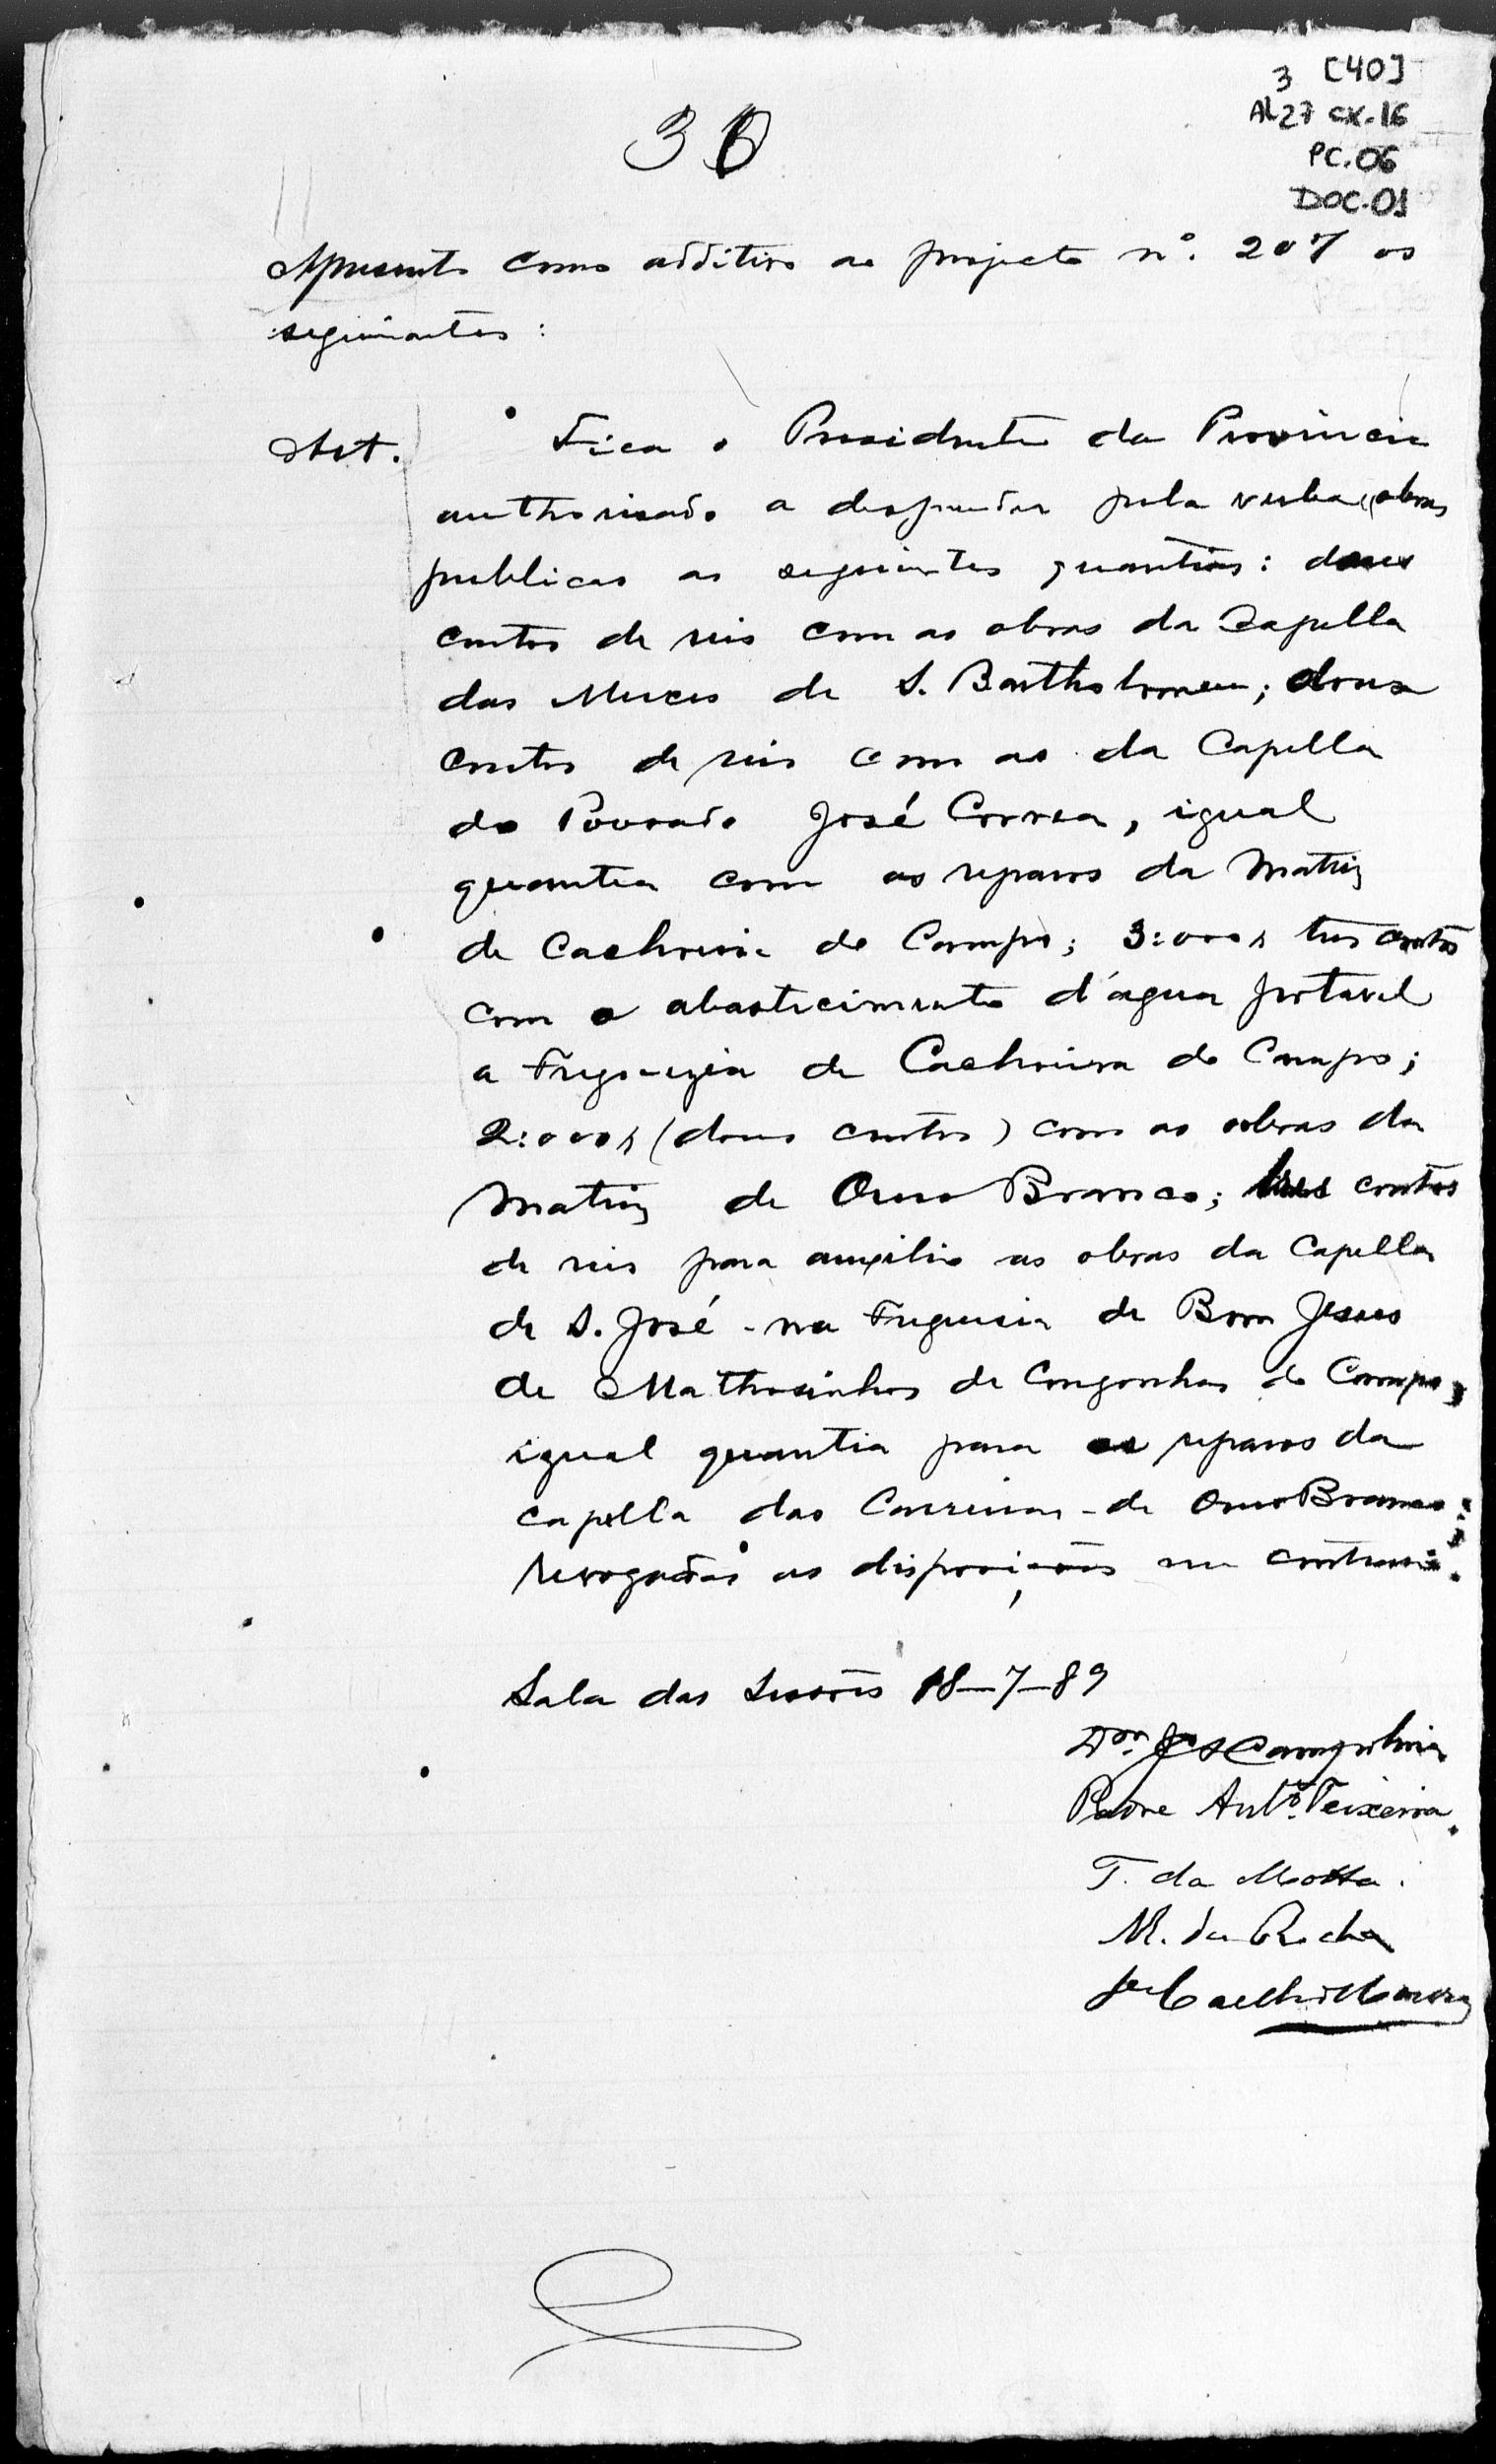 3 [40]
AL27 CX.16
PC.06
DOC.01
36
Apresento como additivo ao projecto nº. 207 os
seguintes:
Art. Fica o Presidente da Provincia
authorisado a despender pela verba "obras
publicas as seguintes quantias: dous
contos de reis com as obras da Capella
das Merces de S. Bartholomeu; dous
contos de reis com as da Capella
do Povoado José Correa, igual
quantia com os reparos da Matriz
de Cachoeira do Campo; 3:000$ tres contos
com o abastecimento d'agua potavel
a Freguezia de Cachoeira do Campo;
2:000$ (dous contos) com as obras da
Matriz de Ouro Branco; tres contos
de reis para auxilio as obras da Capella
de S. José - na Freguesia de Bom Jesus
de Mathosinhos de Congonhas do Campo,
igual quantia para os reparos da
capella das - de Ouro Branco:
revogadas as disposições em contrario.
Sala das Sessões 18-7-89
Dor. Campolina
Padre Antº. Teixeira.
T. da Motta.
M. da Rocha
Coelho Moura